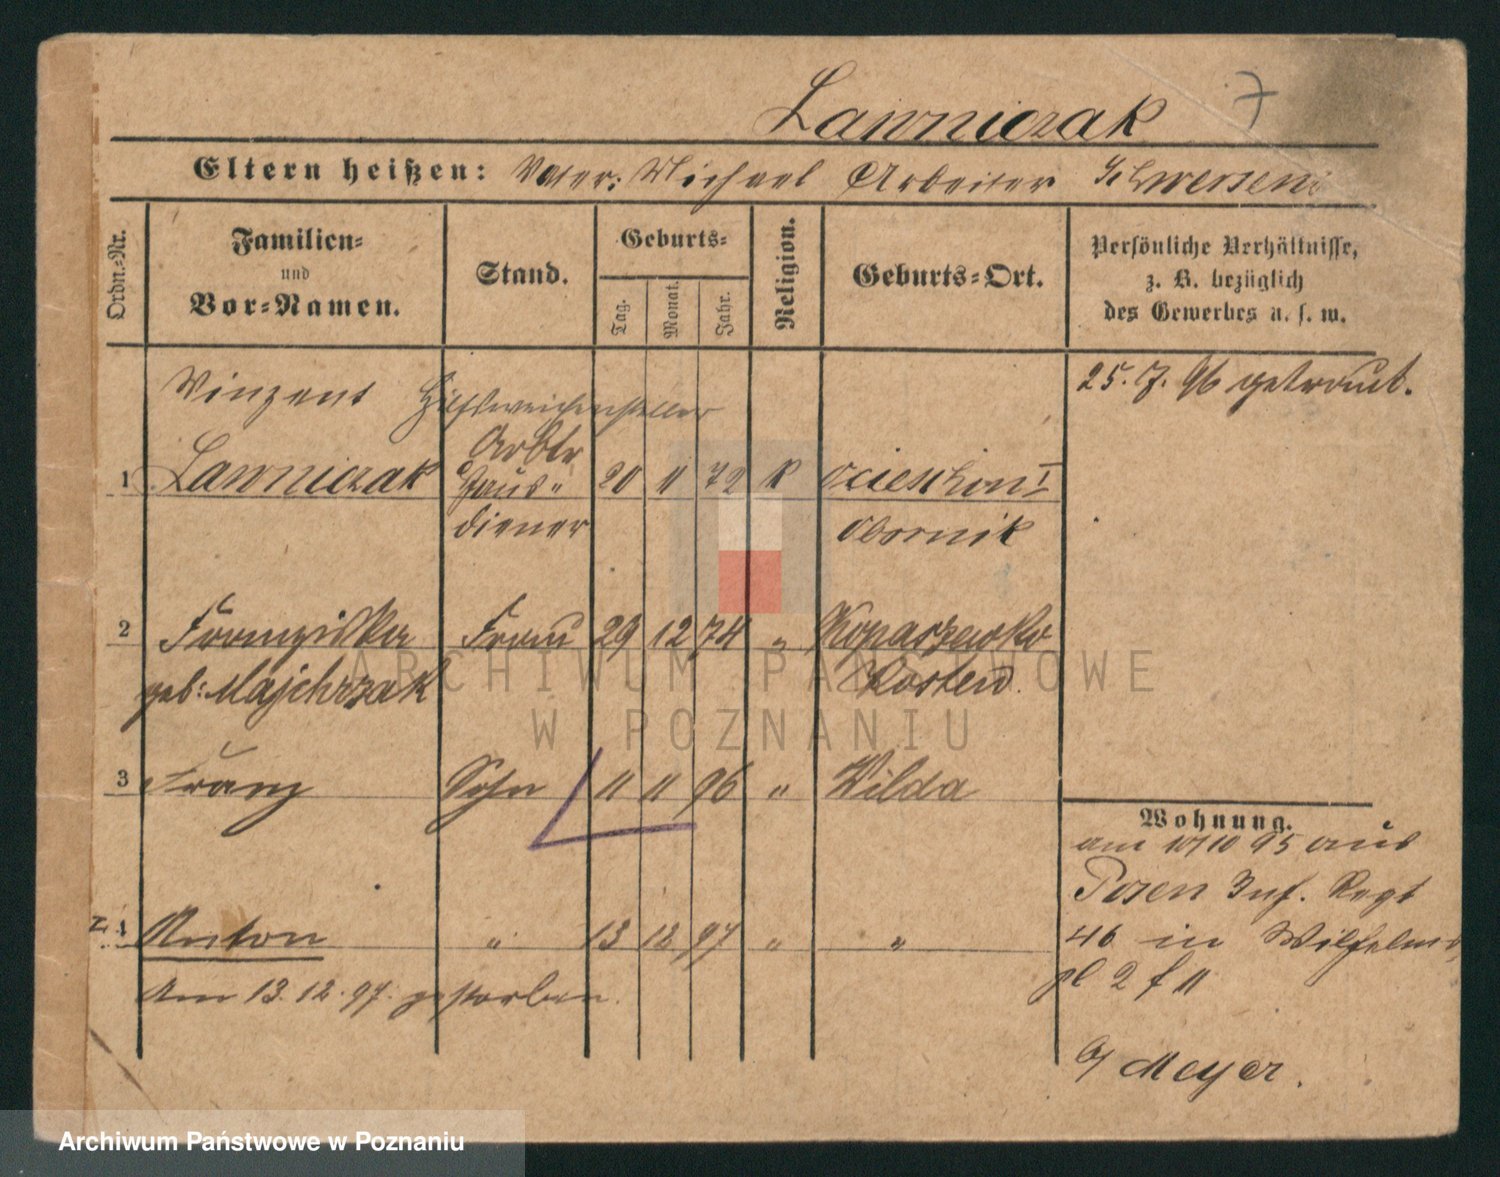 Lawniczak 7
Eltern heißen: Vater: Michael Arbeiter Schwersenz
Ordn.=Nr.
Familien=
und
Vor=Namen.
Stand.
Geburts=
Tag.
Monat.
Jahr.
Religion.
Geburts=Ort.
Persönliche Verhältnisse,
z. B. bezüglich
des Gewerbes u. s. w.
Vinzent Hilfsweichensteller
25. 7. 96 getraut.
Arbtr
1 Lawniczak Haus- 20 11 72 k
diener Obornik
2 Franziska Frau 29 12 74 " Kopaszewko
geb: Majchrzak Kosten
3 Franz Sohn 11 11 96 " Wilda
4 Anton " 13 12 97 " "
Am 13. 12. 97. gestorben.
Wohnung.
am 10 95 aus
Posen Inf. Regt
46 in Wilhelms
pl 2 f 11
b/ Meyer.
ARCHIWUM PAŃSTWOWE
W POZNANIU
Archiwum Państwowe w Poznaniu